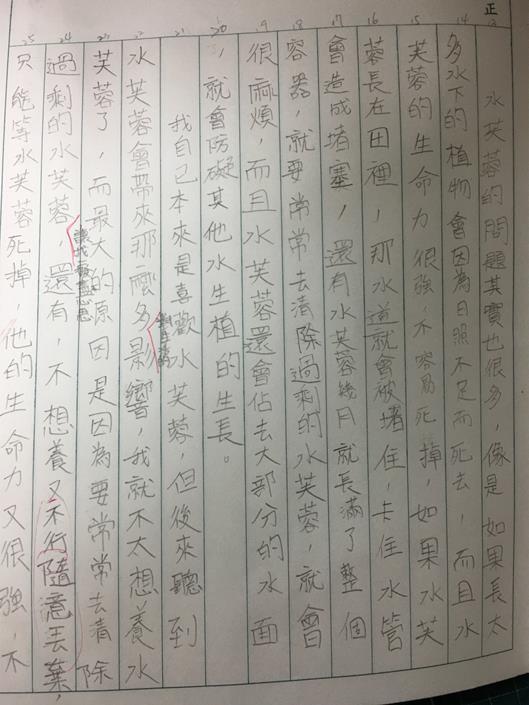 正
水芙蓉的問題其實也很多，像是如果長太
多水下的植物會因為日照不足而死去，而且水
芙蓉的生命力很強，不容易死掉，如果水芙
蓉長在田裡，那水道就會被堵住，卡住水管
會造成堵塞，還有水芙蓉幾月就長滿了整個
容器，就要常常去清除過剩的水芙蓉，就會
很麻煩，而且水芙蓉還會佔去大部分的水面
，就會防礙其他水生植的生長。
我自己本來是喜歡水芙蓉，但後來聽到
水芙蓉會帶來那麼多影響，我就不太想養水
芙蓉了，而最大的原因是因為要常常去清除
過剩的水芙蓉，還有，不想養又不行隨意丟棄，
只能等水芙蓉死掉，他的生命力又很強，不